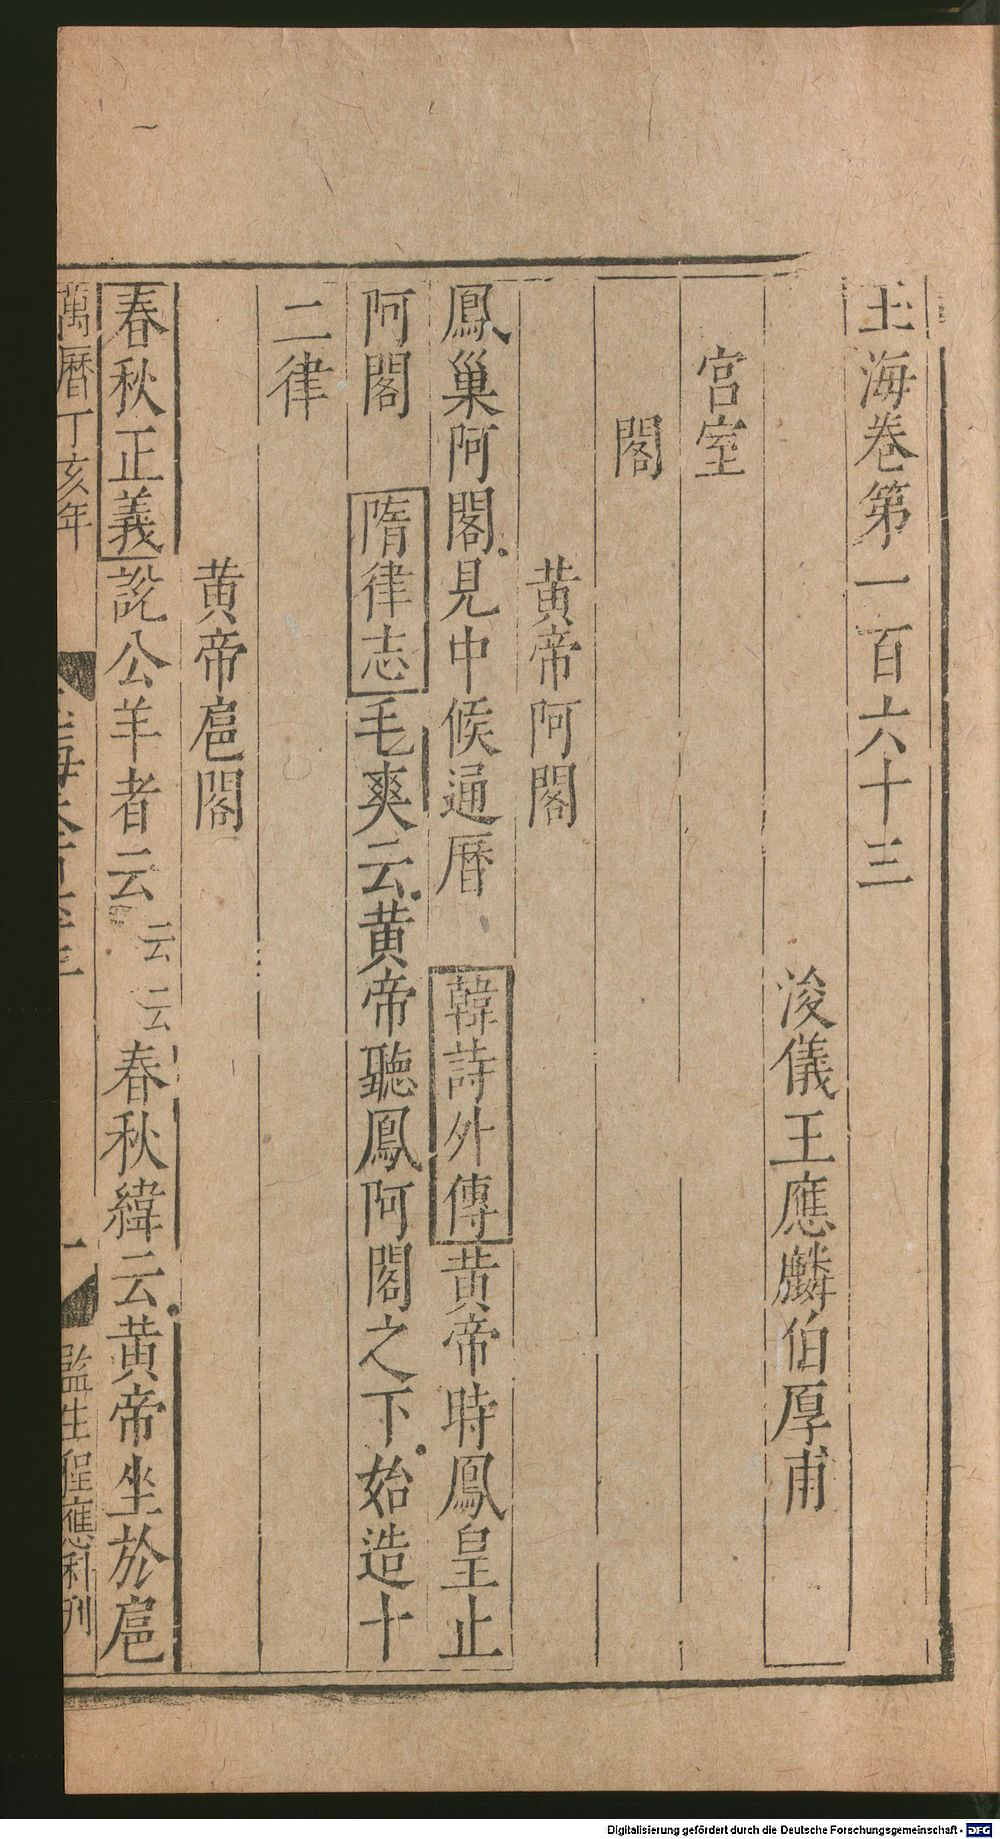 玉海卷第一百六十三
浚儀王應麟伯厚甫
宮室
閣
黄帝阿閣
鳳巢阿閣見中候通曆 韓詩外傳黄帝時鳳皇止
阿閣 隋律志毛爽云黄帝聽鳳阿閣之下始造十
二律
黄帝扈閣
春秋正義說公羊者云云云春秋緯云黄帝坐於扈
萬曆丁亥年
一
監生程應
Digitalisierung gefördert durch die Deutsche Forschungsgemeinschaft - DFG